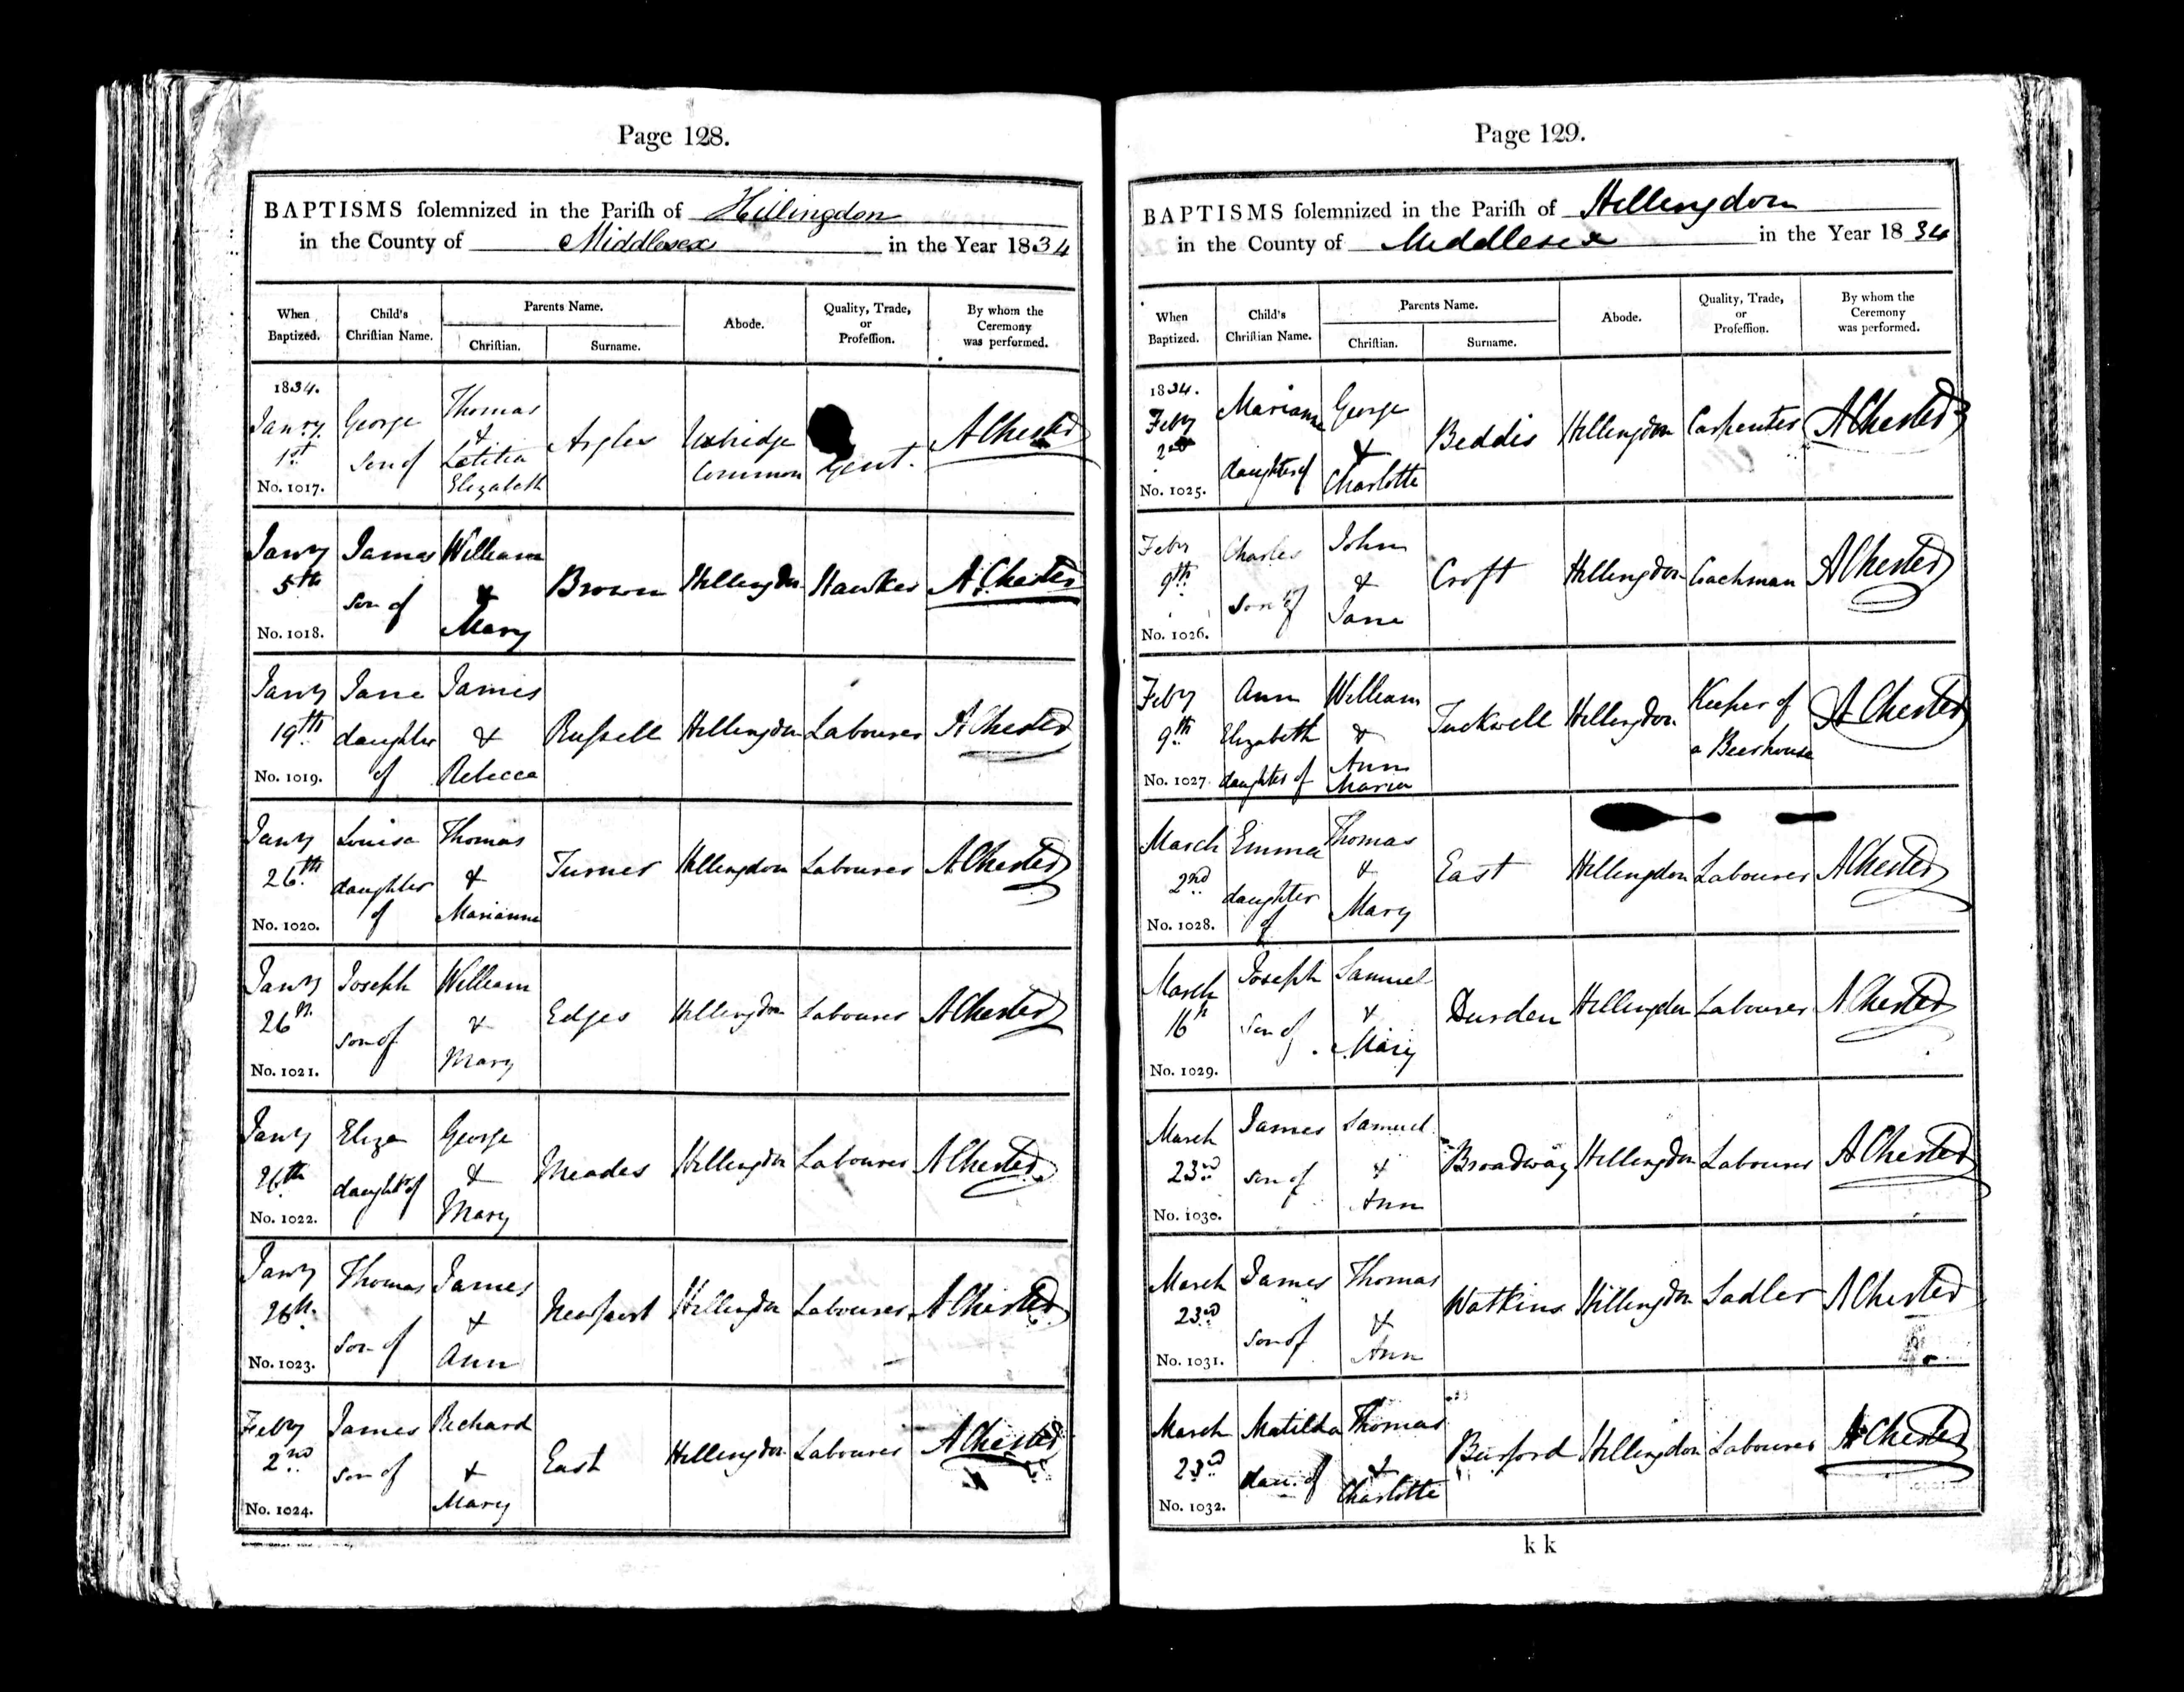 Page 128.
BAPTISMS solemnized in the Parish of Hillingdon
in the County of Middlesex in the Year 1834
When Baptized. Child's Christian Name. Parents Name. Christian. Surname. Abode. Quality, Trade, or Profession. By whom the Ceremony was performed.
1834. Janry. 1st No. 1017. George son of Thomas & Letitia Elizabeth Argles Uxbridge Common Gent. A Chester
Janry 5th No. 1018. James son of William & Mary Brown Hillingdon Hawker A. Chester
Janry 19th No. 1019. Jane daughter of James & Rebecca Russell Hillingdon Labourer A Chester
Janry 26th No. 1020. Louisa daughter of Thomas & Marianne Turner Hillingdon Labourer A Chester
Janry 26th No. 1021. Joseph son of William & Mary Edges Hillingdon Labourer A Chester
Janry 26th No. 1022. Eliza daughtr of George & Mary Meades Hillingdon Labourer A Chester
Janry 26th No. 1023. Thomas son of James & Ann Newport Hillingdon Labourer A Chester
Febry 2nd No. 1024. James son of Richard & Mary East Hillingdon Labourer A Chester
Page 129.
BAPTISMS solemnized in the Parish of Hillingdon
in the County of Middlesex in the Year 1834
When Baptized. Child's Christian Name. Parents Name. Christian. Surname. Abode. Quality, Trade, or Profession. By whom the Ceremony was performed.
1834. Feby 2nd No. 1025. Marianne daughter of George & Charlotte Beddis Hillingdon Carpenter A Chester
Feby 9th No. 1026. Charles son of John & Jane Croft Hillingdon Coachman A Chester
Feby 9th No. 1027. Ann Elizabeth daughter of William & Ann Maria Tuckwell Hillingdon Keeper of a Beerhouse A Chester
March 2nd No. 1028. Emma daughter of Thomas & Mary East Hillingdon Labourer A Chester
March 16th No. 1029. Joseph son of Samuel & Mary Durden Hillingdon Labourer A Chester
March 23rd No. 1030. James son of Samuel & Ann Broadway Hillingdon Labourer A Chester
March 23rd No. 1031. James son of Thomas & Ann Watkins Hillingdon Sadler A Chester
March 23rd No. 1032. Matilda dau. of Thomas & Charlotte Burford Hillingdon Labourer A Chester
k k